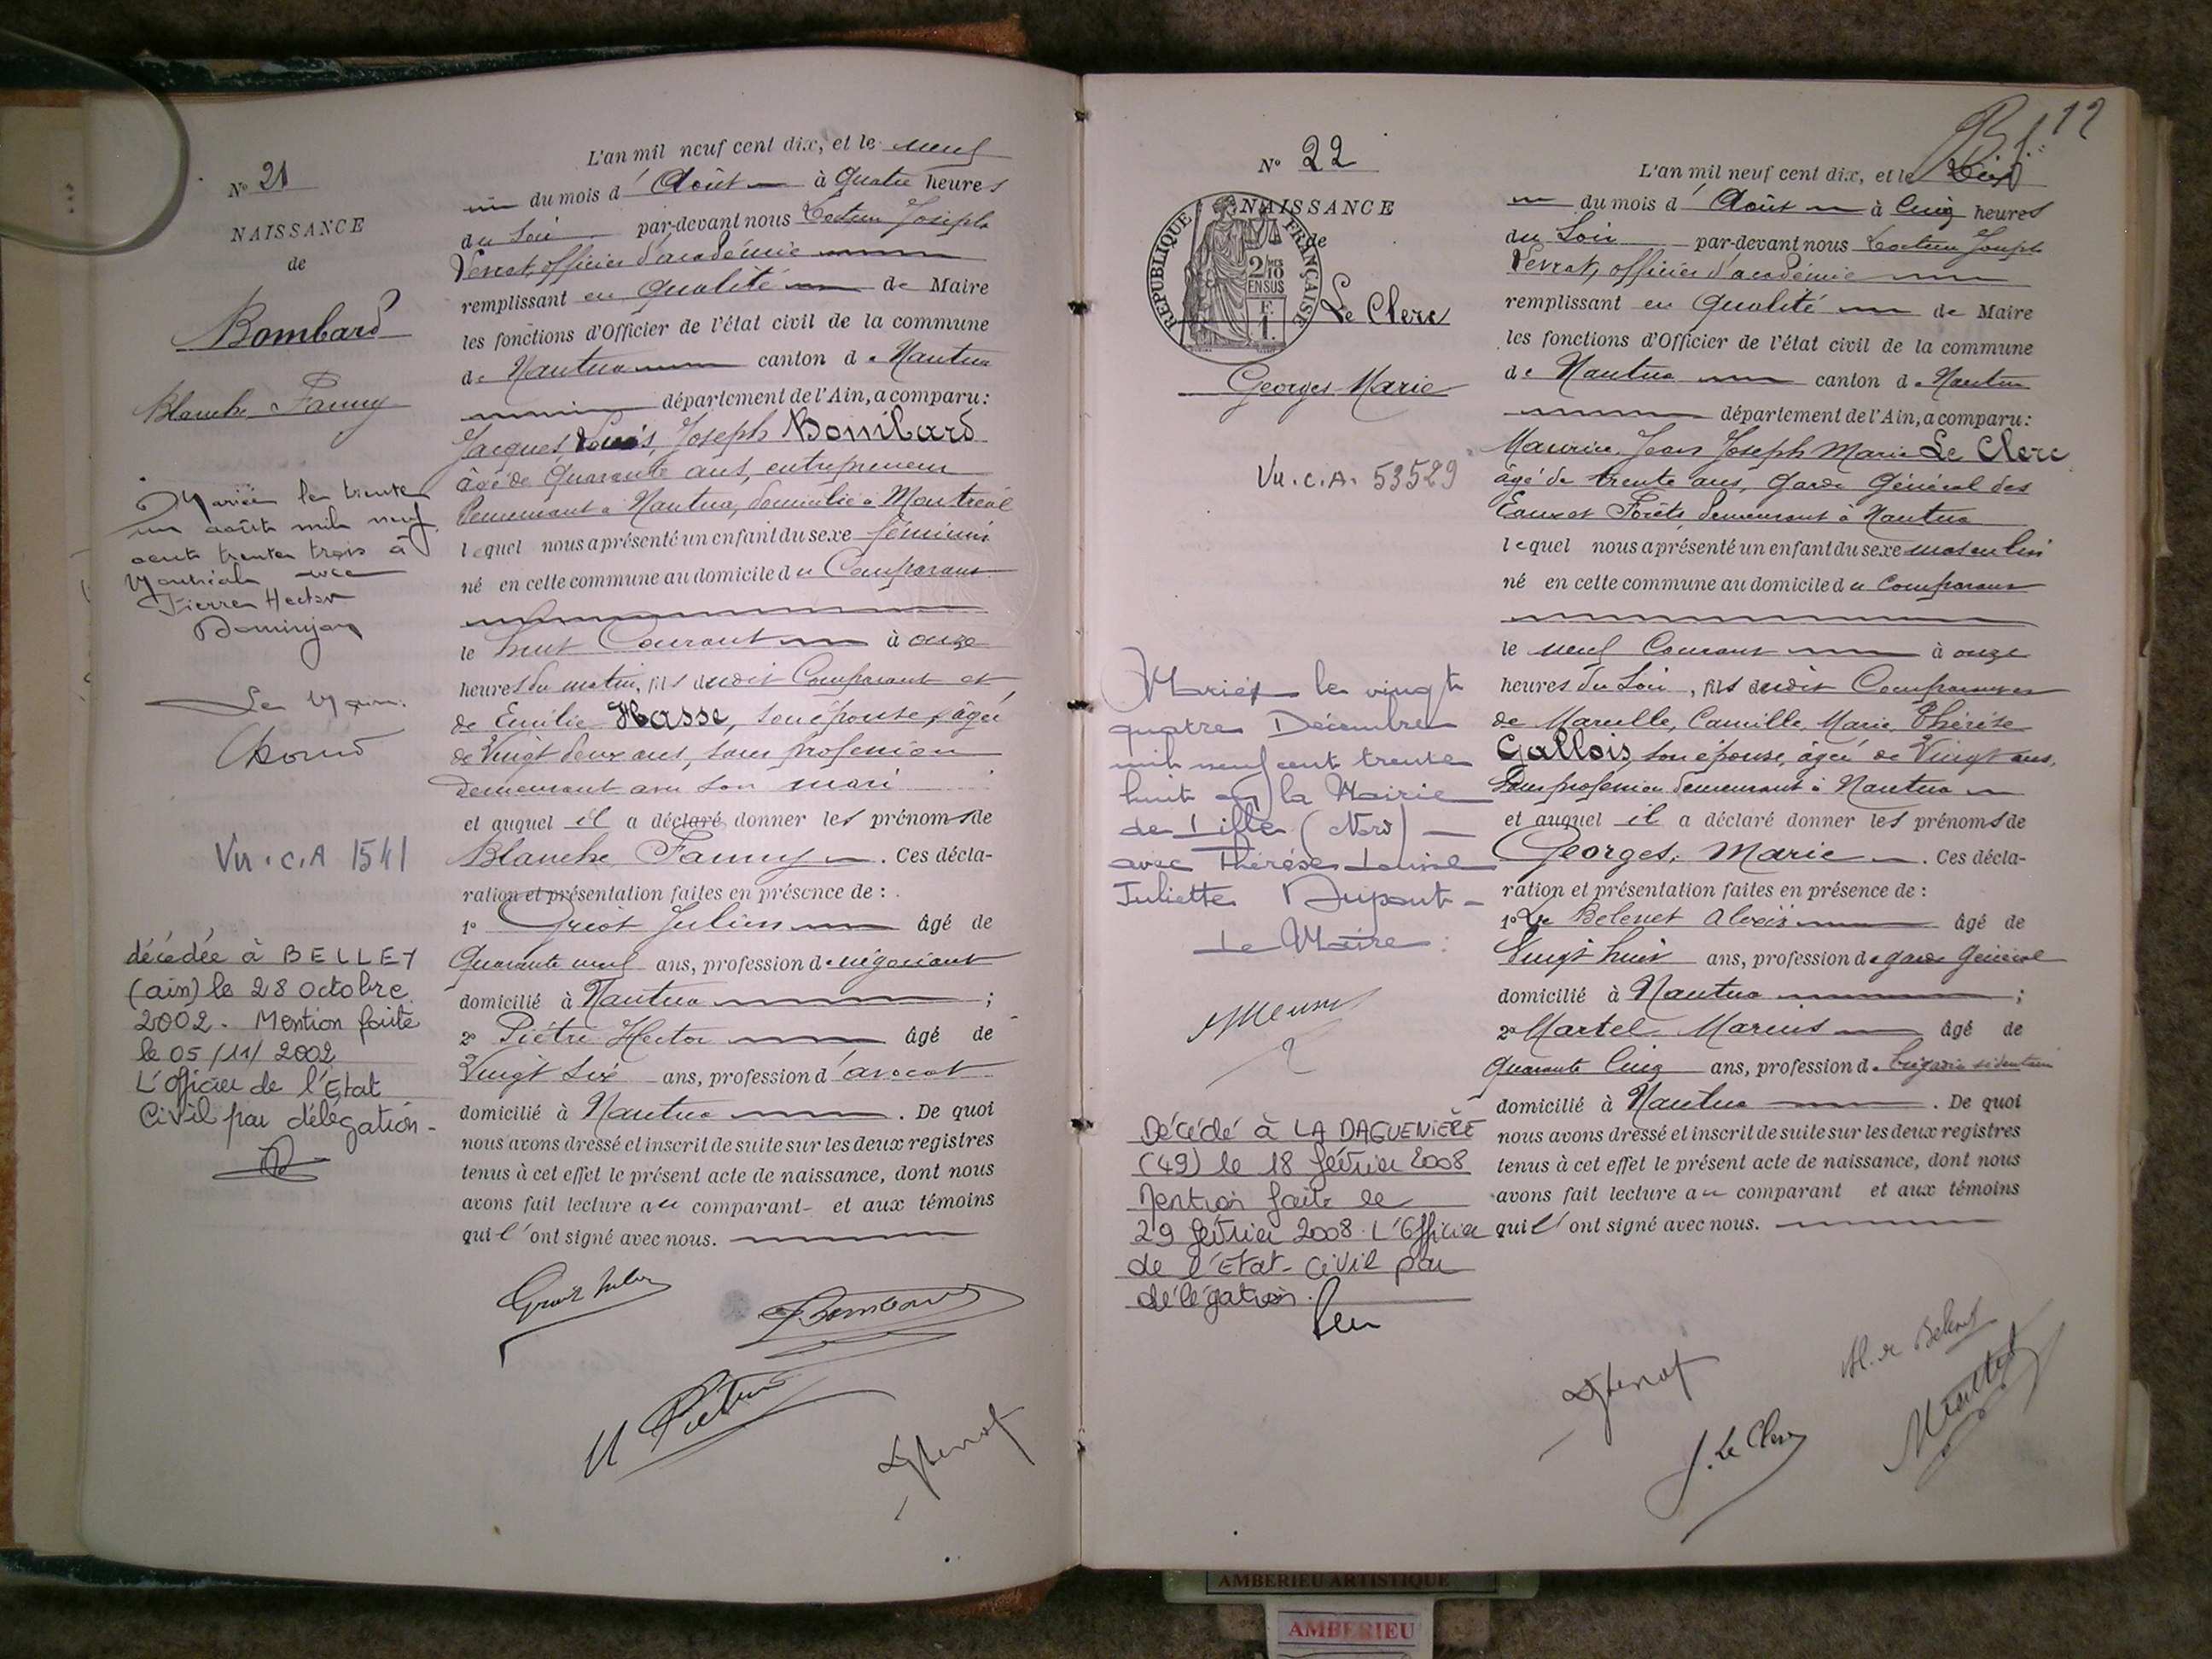 N° 21
NAISSANCE
de
Bombard
Blanche Fanny
Mariée le trente
un août mil neuf
cent trente trois à
Montréal avec
Pierre Hector
Dominjon
Le Maire
Vu.C.A 1541
décédée à BELLEY
(ain) le 28 octobre
2002. Mention faite
le 05/11/2002
L'officier de l'Etat
Civil par délégation
L'an mil neuf cent dix, et le neuf
du mois d'Août à Quatre heures
du Soir par-devant nous Docteur Joseph
officier d'académie
remplissant en qualité de Maire
les fonctions d'Officier de l'état civil de la commune
de Nantua canton de Nantua
département de l'Ain, a comparu:
Jacques, Louis, Joseph Bombard
âgé de Quarante ans, entrepreneur
demeurant à Nantua, domicilié à Montréal
lequel nous a présenté un enfant du sexe féminin
né en cette commune au domicile du Comparant
le huit Courant à onze
heures du matin, fils dudit Comparant et
de Emilie Hasse, son épouse, âgée
de Vingt deux ans, sans profession
demeurant avec son mari
et auquel il a déclaré donner les prénoms de
Blanche Fanny. Ces décla-
ration et présentation faites en présence de :
1° Griot Julien âgé de
Quarante neuf ans, profession de négociant
domicilié à Nantua ;
2° Piétri Hector âgé de
Vingt Six ans, profession d'avocat
domicilié à Nantua. De quoi
nous avons dressé et inscrit de suite sur les deux registres
tenus à cet effet le présent acte de naissance, dont nous
avons fait lecture au comparant et aux témoins
qui l'ont signé avec nous.
Bombard
12
N° 22
NAISSANCE
de
REPUBLIQUE FRANÇAISE
2/10 EN SUS
F. 1.
Le Clerc
Georges Marie
Vu.C.A. 53529
Marié le vingt
quatre Décembre
mil neuf cent trente
huit à la Mairie
de Lille (Nord)
avec Thérèse Louise
Juliette Dupont
Le Maire :
Décédé à LA DAGUENIÈRE
(49) le 18 février 2008
Mention faite le
29 février 2008. L'Officier
de l'Etat-Civil par
délégation.
L'an mil neuf cent dix, et le Dix
du mois d'Août à Cinq heures
du Soir par-devant nous Docteur Joseph
officier d'académie
remplissant en qualité de Maire
les fonctions d'Officier de l'état civil de la commune
de Nantua canton de Nantua
département de l'Ain, a comparu:
Maurice Jean Joseph Marie Le Clerc
âgé de trente ans, Garde Général des
Eaux et Forêts demeurant à Nantua
lequel nous a présenté un enfant du sexe masculin
né en cette commune au domicile du Comparant
le neuf Courant à onze
heures du Soir, fils dudit Comparant et
de Marcelle, Camille, Marie, Thérèse
Gallois, son épouse, âgée de Vingt ans,
Sans profession demeurant à Nantua
et auquel il a déclaré donner les prénoms de
Georges, Marie. Ces décla-
ration et présentation faites en présence de :
1° De Belenet Alexis âgé de
Vingt huit ans, profession de garde Général
domicilié à Nantua ;
2° Martel Marius âgé de
Quarante Cinq ans, profession de brigadier sédentaire
domicilié à Nantua. De quoi
nous avons dressé et inscrit de suite sur les deux registres
tenus à cet effet le présent acte de naissance, dont nous
avons fait lecture au comparant et aux témoins
qui l'ont signé avec nous.
J. Le Clerc
AMBERIEU ARTISTIQUE
AMBERIEU